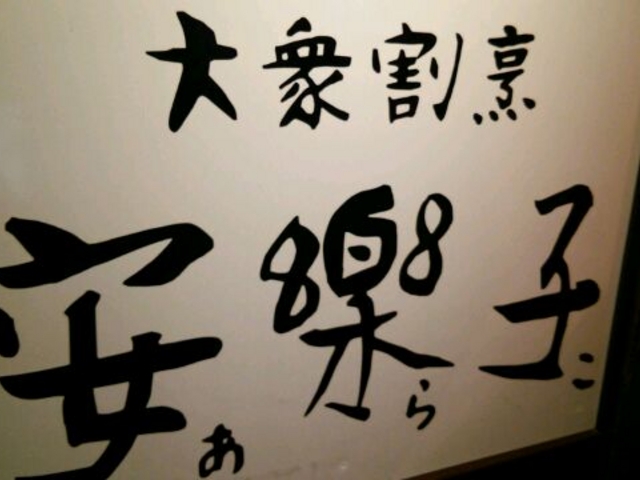 大衆割烹
安樂子
あらこ